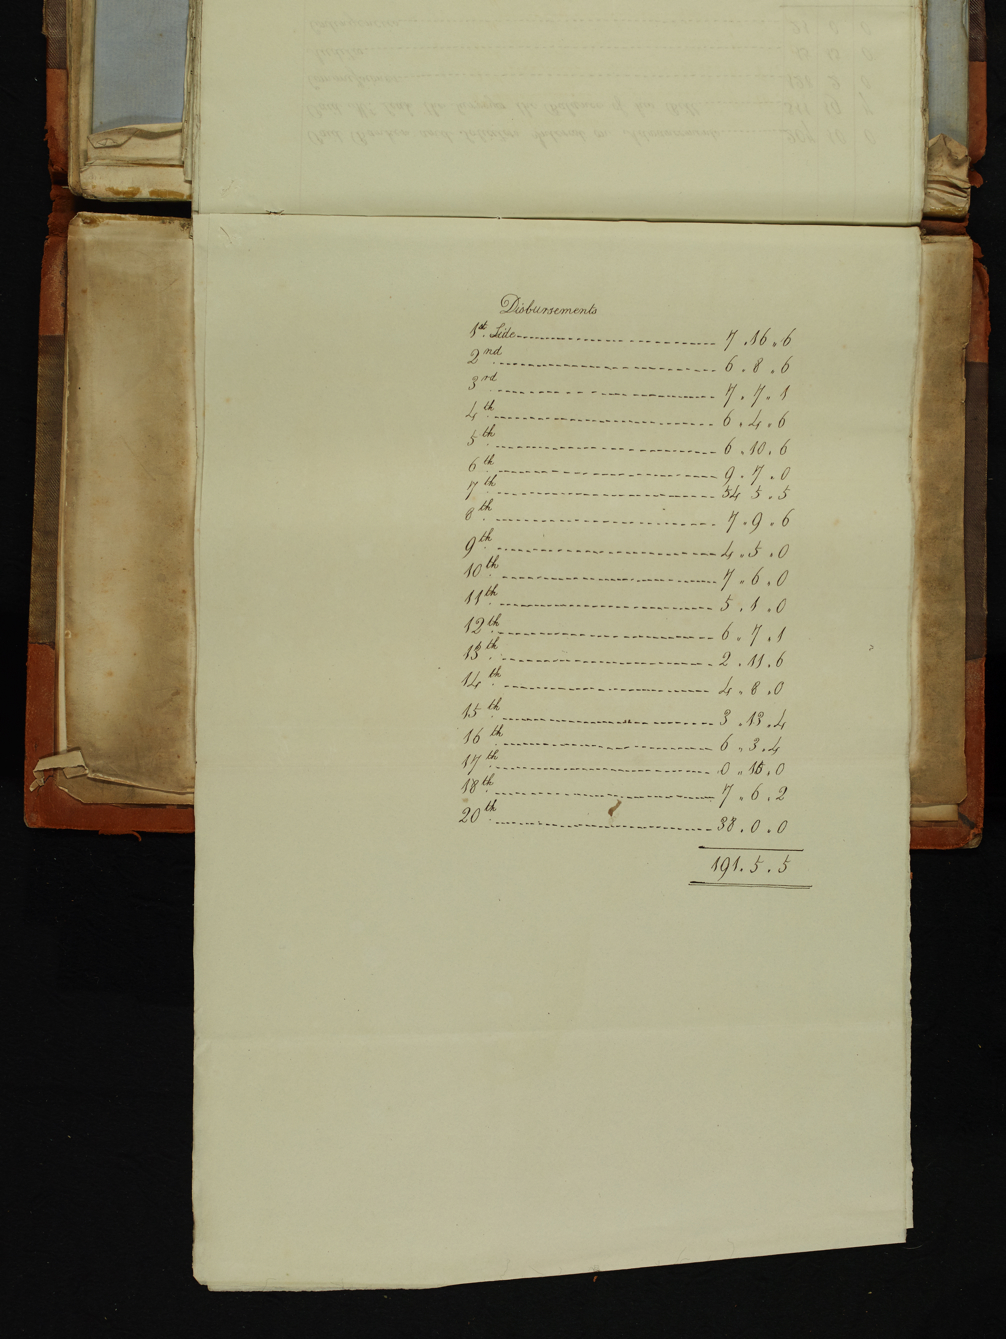 Disbursements
1st. Side 7 . 16 . 6
2nd. 6 . 8 . 6
3rd. 7 . 7 . 1
4th. 6 . 4 . 6
5th. 6 . 10 . 6
6th. 9 . 7 . 0
7th. 54 5 . 5
8th. 7 . 9 . 6
9th. 4 . 5 . 0
10th. 7 . 6 . 0
11th. 5 . 1 . 0
12th. 6 . 7 . 1
13th. 2 . 11 . 6
14th. 4 . 8 . 0
15th. 3 . 13 . 4
16th. 6 . 3 . 4
17th. 0 . 15 . 0
18th. 7 . 6 . 2
20th. 38 . 0 . 0
191 . 5 . 5